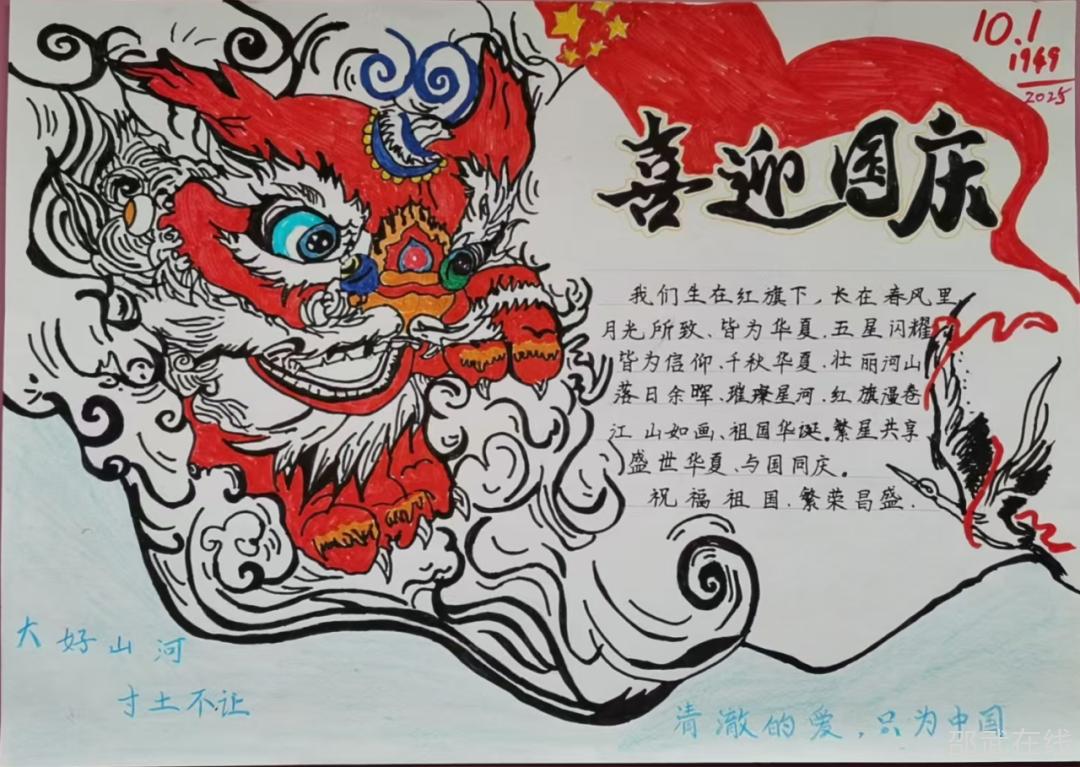 10.1
1949
2025
喜迎国庆
我们生在红旗下，长在春风里
月光所致、皆为华夏.五星闪耀
皆为信仰.千秋华夏.壮丽河山
落日余晖.璀璨星河.红旗漫卷
江山如画、祖国华诞。繁星共享
盛世华夏、与国同庆。
祝福祖国.繁荣昌盛.
大好山河
寸土不让
清澈的爱，只为中国
邵武在线